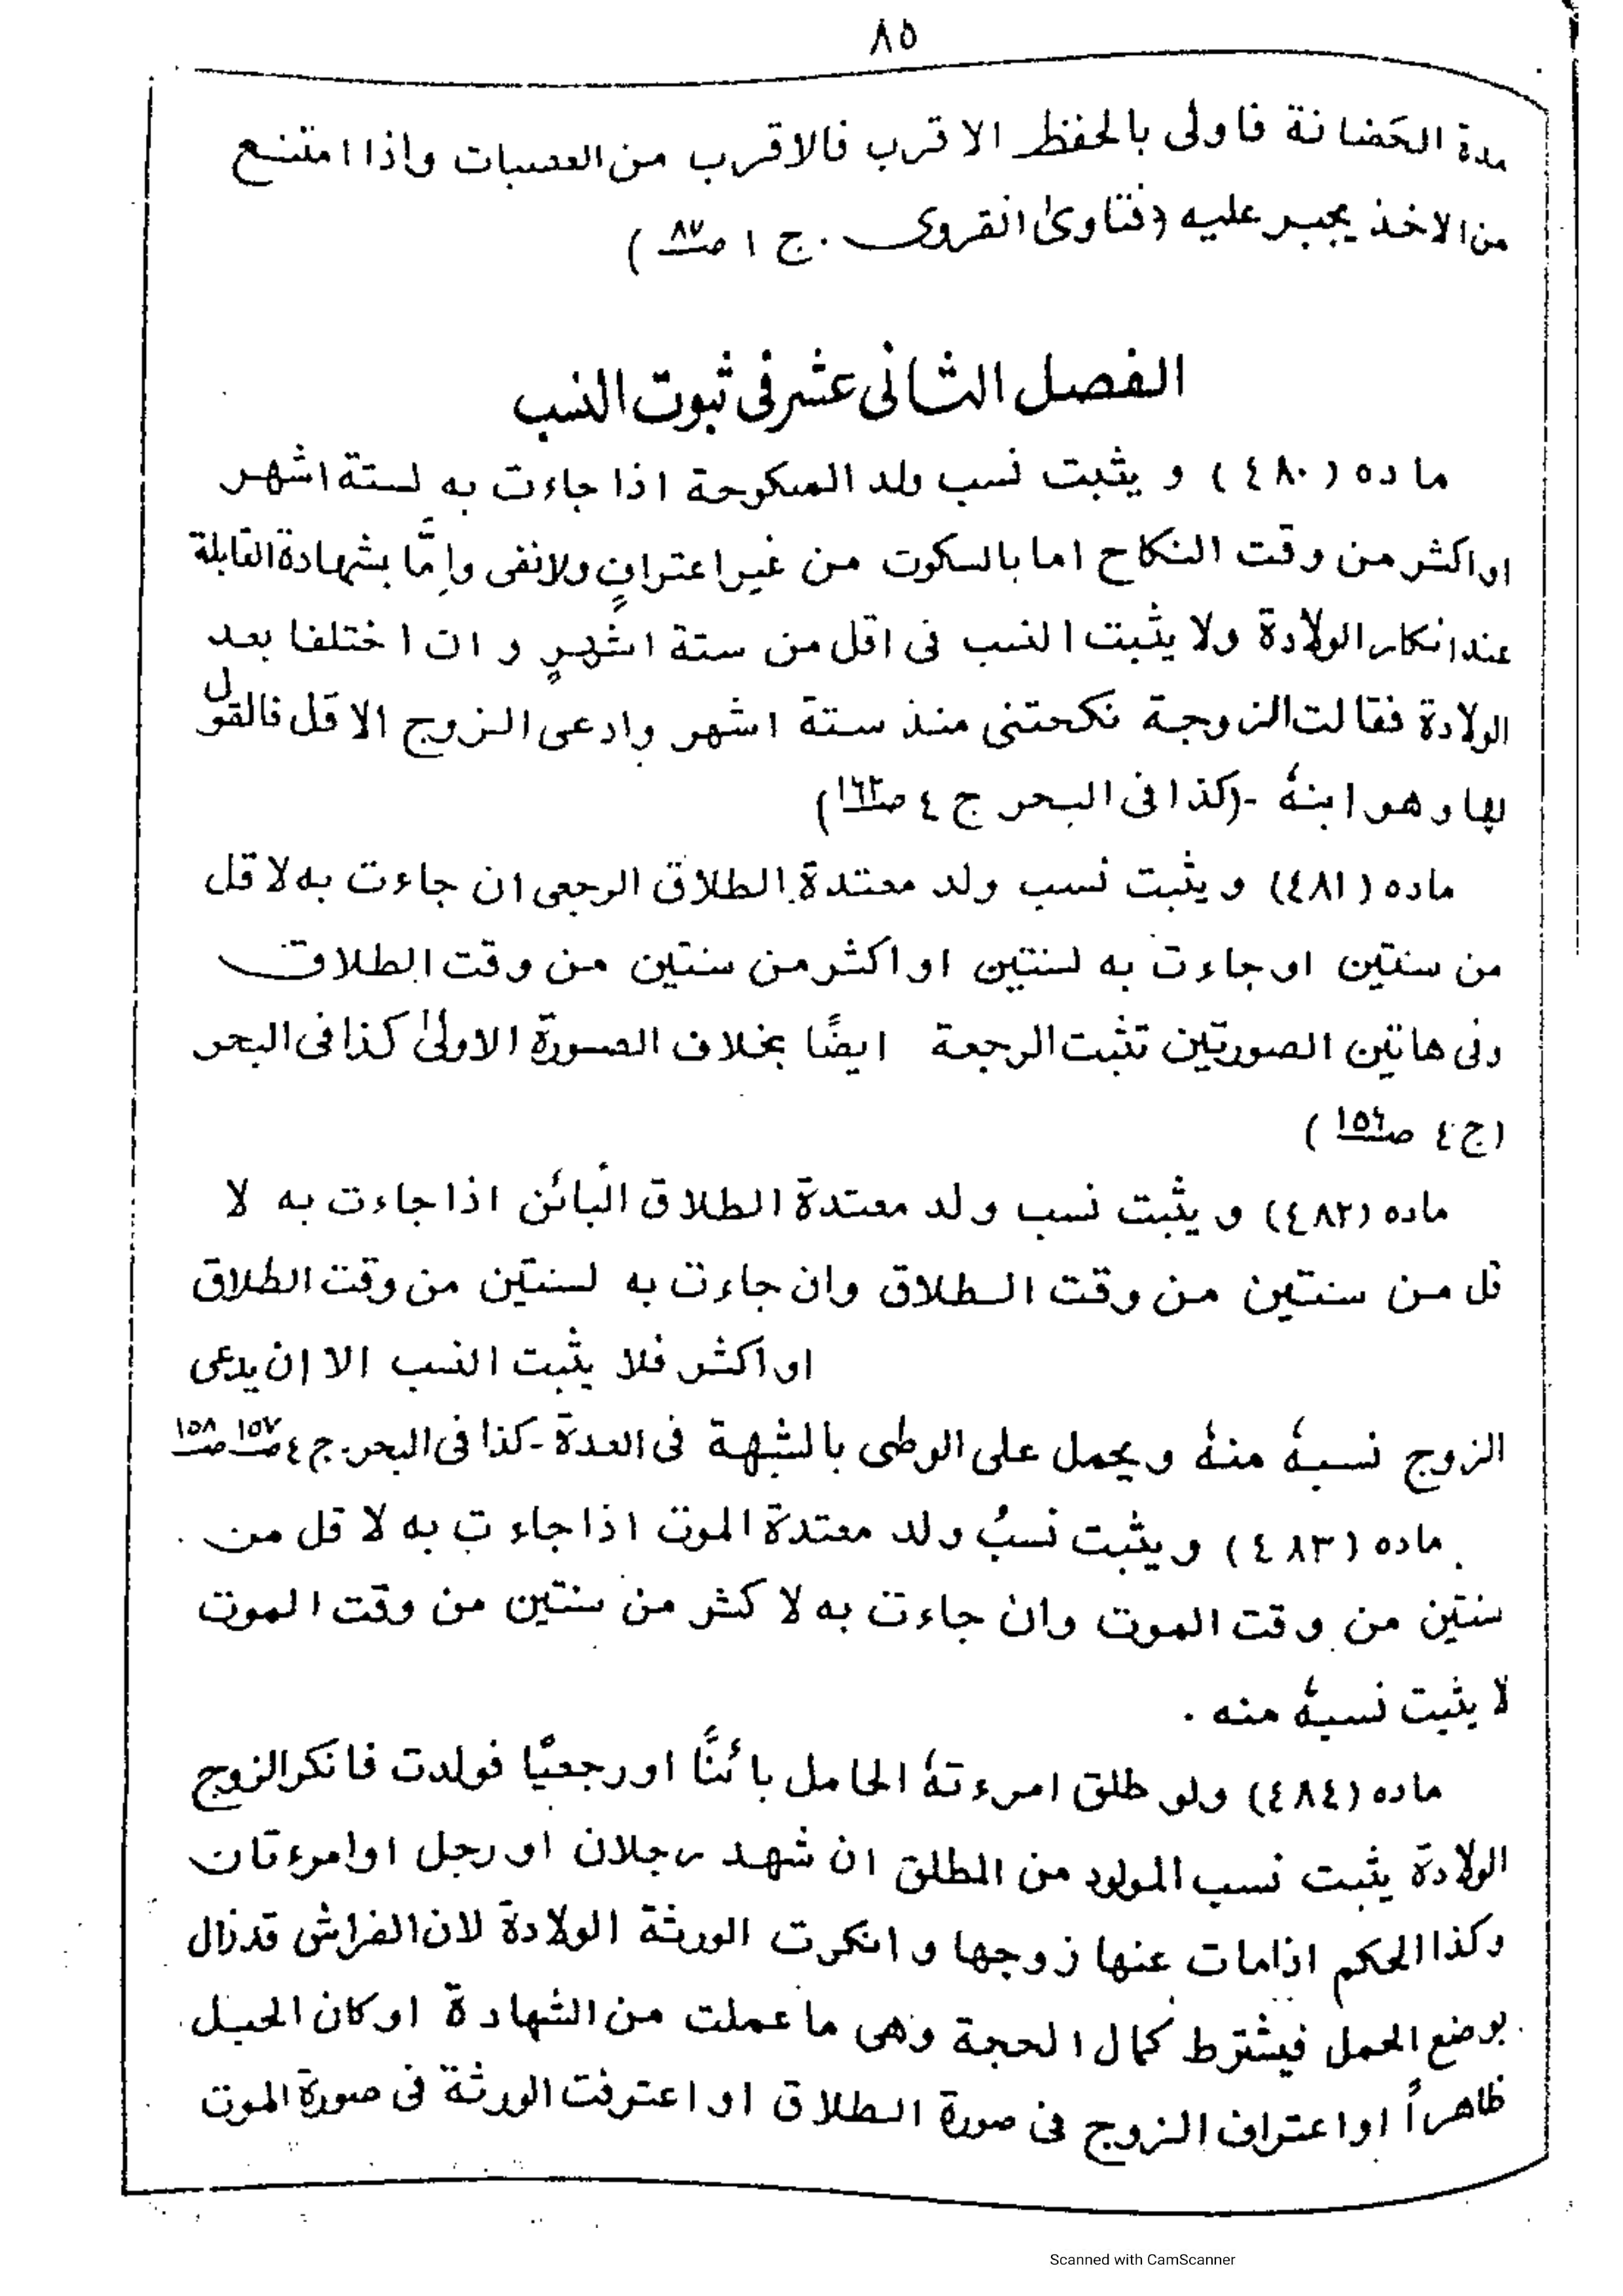 ٨٥
مدة الحَضانة فاولى بالحفظ الاقرب فالاقرب من العصبات واذا امتنع
من الاخذ يجبر عليه (فتاوىٰ انقروى . ج ١ صـ٨٧)
الفصل الثانى عشر فى ثبوت النسب
ماده (٤٨٠) و يثبت نسب ولد المنكوحة اذا جاءت به لستة اشهر
او اكثر من وقت النكاح اما بالسكوت من غير اعترافٍ ولا نفى وإمَّا بشهادة القابلة
عند انكار الولادة ولا يثبت النسب فى اقل من ستة اشهرٍ و ان اختلفا بعد
الولادة فقالت الزوجة نكحتنى منذ ستة اشهر وادعى الزوج الاقل فالقول
لها وهو ابنهٗ -(كذا فى البحر ج ٤ صـ١٦٢)
ماده (٤٨١) و يثبت نسب ولد معتدة الطلاق الرجعى ان جاءت به لاقل
من سنتين او جاءت به لسنتين او اكثر من سنتين من وقت الطلاق
وفى هاتين الصورتين تثبت الرجعة ايضًا بخلاف الصورة الاولىٰ كذا فى البحر
(ج ٤ صـ١٥٦)
ماده (٤٨٢) و يثبت نسب ولد معتدة الطلاق البائن اذا جاءت به لا
قل من سنتين من وقت الطلاق وان جاءت به لسنتين من وقت الطلاق
او اكثر فلا يثبت النسب الا ان يدعى
الزوج نسبهٗ منهٗ ويحمل على الوطى بالشبهة فى العدة - كذا فى البحر. ج ٤ صـ١٥٧ صـ١٥٨
ماده (٤٨٣) ويثبت نسبُ ولد معتدة الموت اذا جاءت به لاقل من
سنتين من وقت الموت وان جاءت به لاكثر من سنتين من وقت الموت
لا يثبت نسبهٗ منه .
ماده (٤٨٤) ولو طلق امرءتهٗ الحامل بائنًا او رجعيًا فولدت فانكر الزوج
الولادة يثبت نسب المولود من المطلق ان شهد رجلان او رجل اوامرءتان
وكذا الحكم اذا مات عنها زوجها و انكرت الورثة الولادة لان الفراش قد زال
بوضع الحمل فيشترط كمال الحجة وهى ما عملت من الشهادة او كان الحبل
ظاهراً او اعتراف الزوج فى صورة الطلاق او اعترفت الورثة فى صورة الموت
Scanned with CamScanner